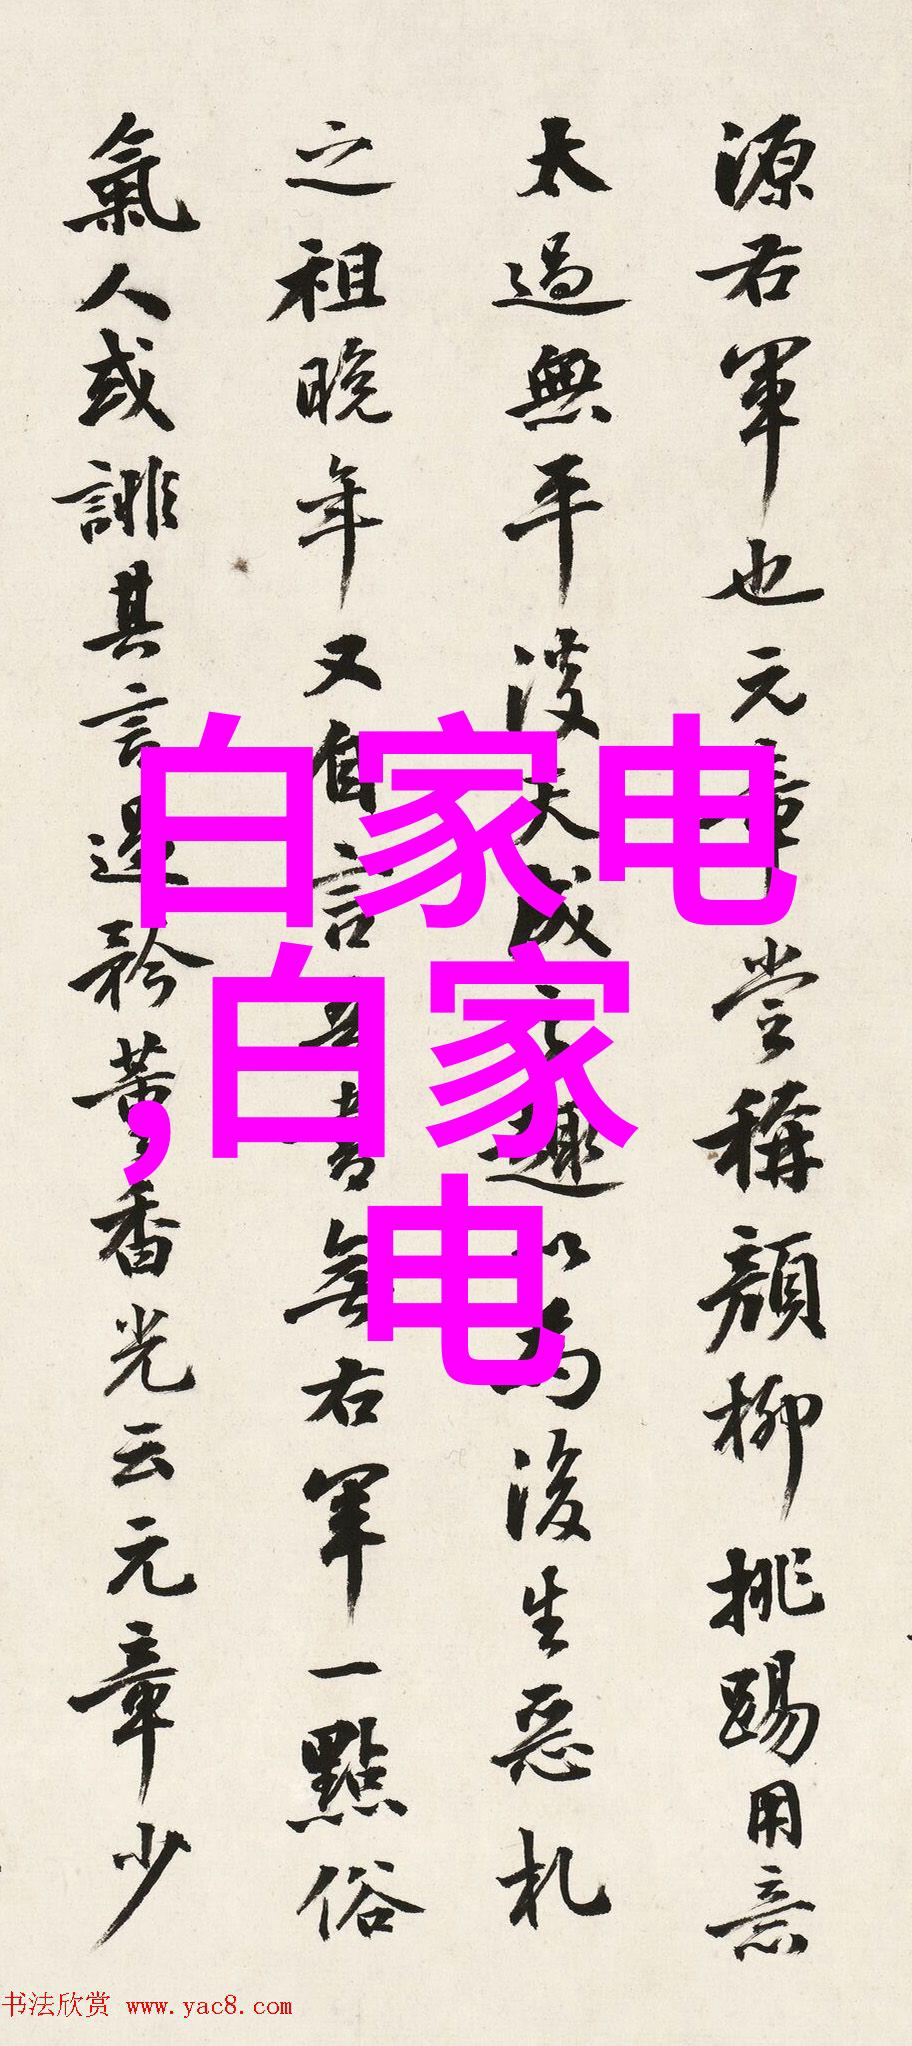 源右軍也元章嘗稱顏柳挑踢用意
太過無平淡天成之趣以為後生惡札
之祖晚年又自言吾書無右軍一點俗
氣人或誹其言矜董香光云元章少
白家电
,白家
电
书法欣赏 www.yac8.com